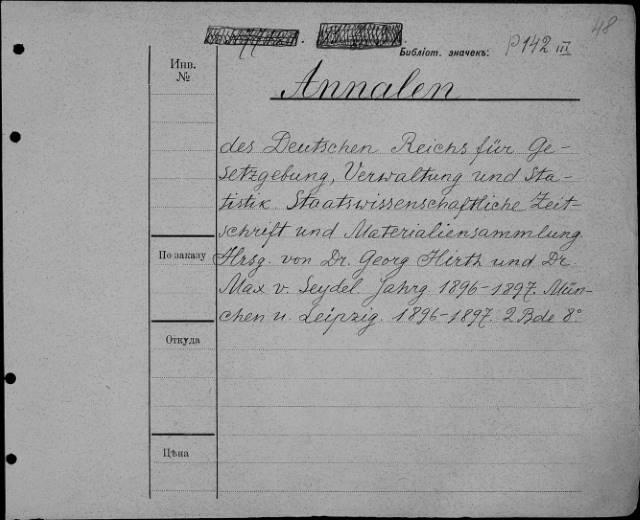 48
Библіот. значекъ: P142 III
Инв.
№
Annalen
des Deutschen Reichs für Ge-
setzgebung, Verwaltung und Sta-
tistik. Staatswissenschaftliche Zeit-
schrift und Materialiensammlung
По заказу
Hrsg. von Dr. Georg Hirth und Dr.
Max v. Seydel Jahrg. 1896-1897. Mün-
chen u. Leipzig. 1896-1897. 2 Bde 8°
Откуда
Цѣна